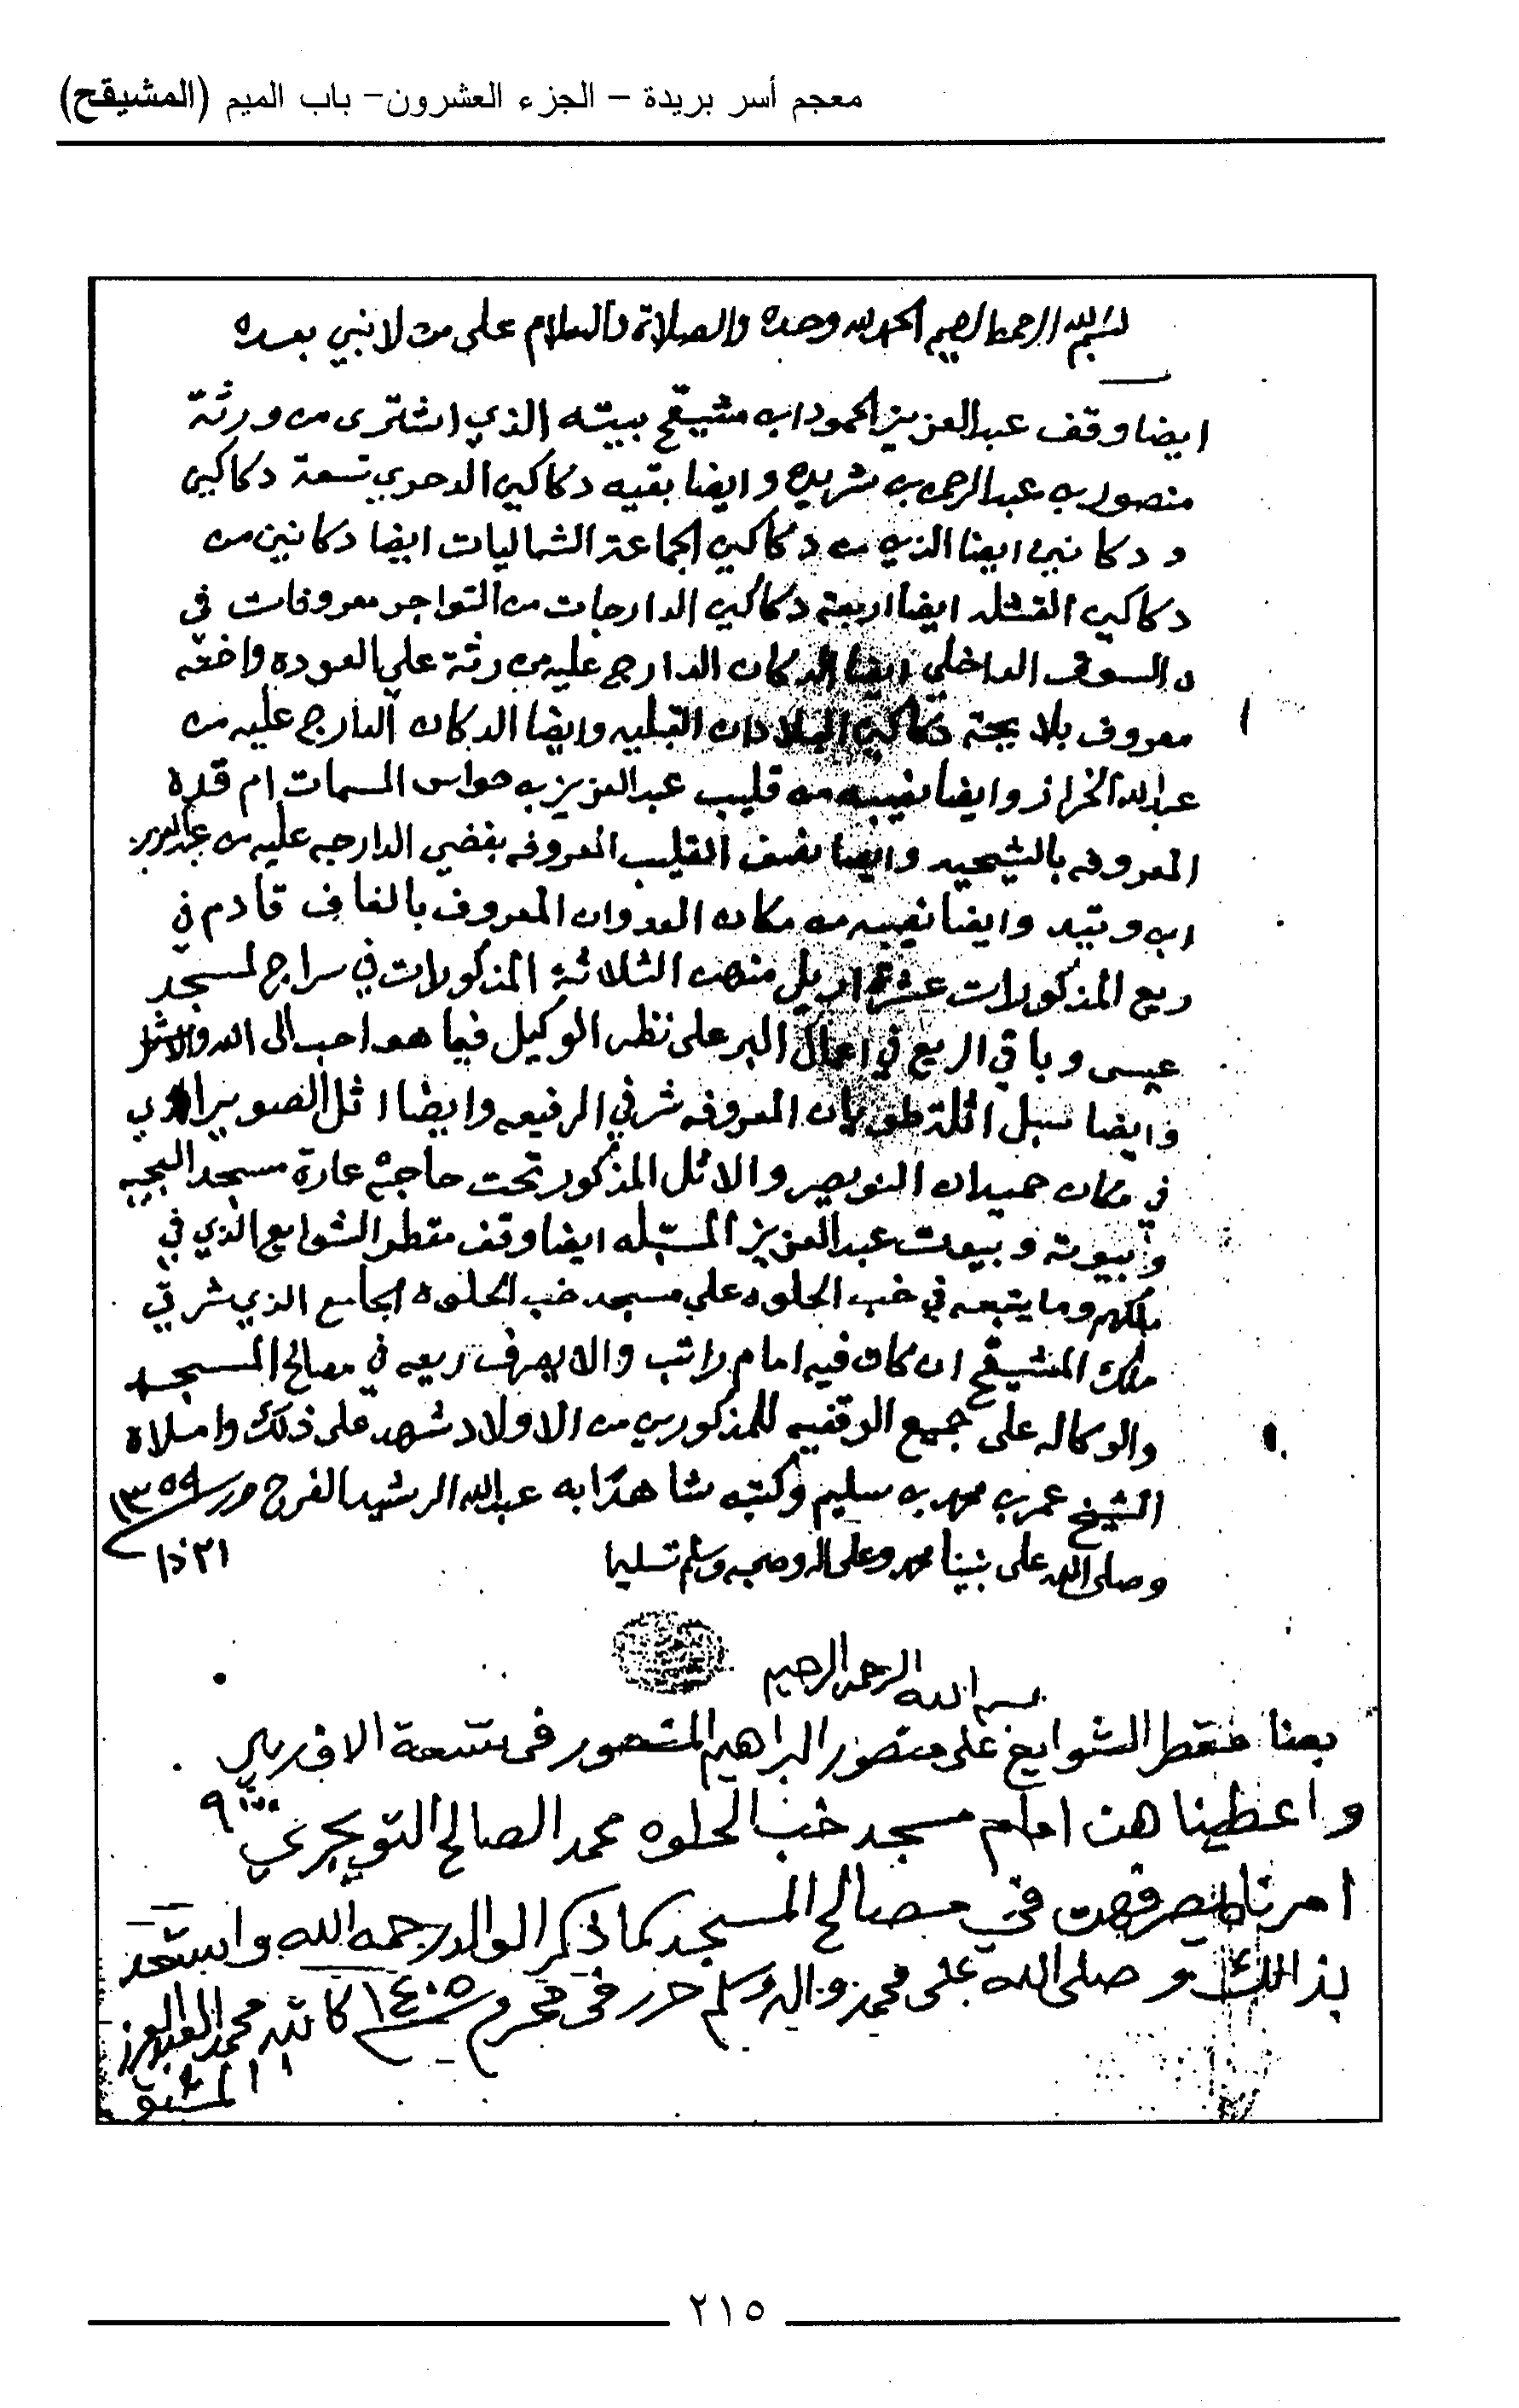 معجم أسر بريدة – الجزء العشرون– باب الميم (المشيقح)
بسم الله الرحمن الرحيم الحمد لله وحده والصلاة والسلام على من لا نبي بعده
ايضا وقف عبدالعزيز الحمود ابن مشيقح بيته الذي اشترى من ورثة
منصور بن عبدالرحمن بن شريده وايضا بقيه دكاكين تسعة دكاكين
و دكانين ايضا الذي من دكاكين الجماعة الشماليات ايضا دكانين من
دكاكين القشله ايضا اربعة دكاكين الدارجات من التواجر معروفات في
السوق الداخلي ايضا الدكان الدارج عليه من رثة علي العوده واضحه
معروف بلا يجة دكاكين القبليه وايضا الدكان الدارج عليه من
عبدالله الخراز وايضا نصيبه من قليب عبدالعزيز بن حواس المسمات ام قدره
المعروفه بالشيحيه وايضا نصف القليب المعروفه بفضي الدارجه عليه من عبدالعزيز
ابن وتيد وايضا نصيبه من مكان العدوان المعروف بالغاف قادم في
ريع المذكورات عشرة اريل منهن الثلاثة المذكورات في سراج لمسجد
عيسى وباقي الريع في اعمال البر على نظر الوكيل فيما هو احب الى الله والاثل
وايضا سبل اثلة المعروفه شرقي الرفيعه وايضا اثل الصوير
في مكان حميدان النويصر والاثل المذكور تحت حاجة عمارة مسجد
وبيوته وبيوت عبدالعزيز المسبله ايضا وقف مقطر الشوايع الذي في
ملكهم وما يتبعه في خب الحلوه على مسجد خب الحلوه الجامع الذي شرقي
ملك المشيقح ان كان فيه امام راتب والا يصرف ريعه في مصالح المسجد
والوكاله على جميع الوقفيه للمذكورين من الاولاد شهد على ذلك واملاه
الشيخ عمر بن محمد بن سليم وكتبه شاهدا به عبدالله الرشيد الفرج حرر ١٣٥٩
٢١ ذا
وصلى الله على نبينا محمد وعلى اله وصحبه وسلم تسليما
بسم الله الرحمن الرحيم
بعنا مقطر الشوايع على منصور البراهيم المنصور في تسعة الاف ريال
٩٠٠٠
واعطيناهن امام مسجد خب الحلوه محمد الصالح التويجري
امرناه يصرفهن في مصالح المسجد كما ذكر الوالد رحمه الله واشهد
بذالك وصلى الله على محمد واله وسلم حرر في محرم ١٤٠٥ كاتبه محمد العبدالعزيز
المشيقح
٢١٥